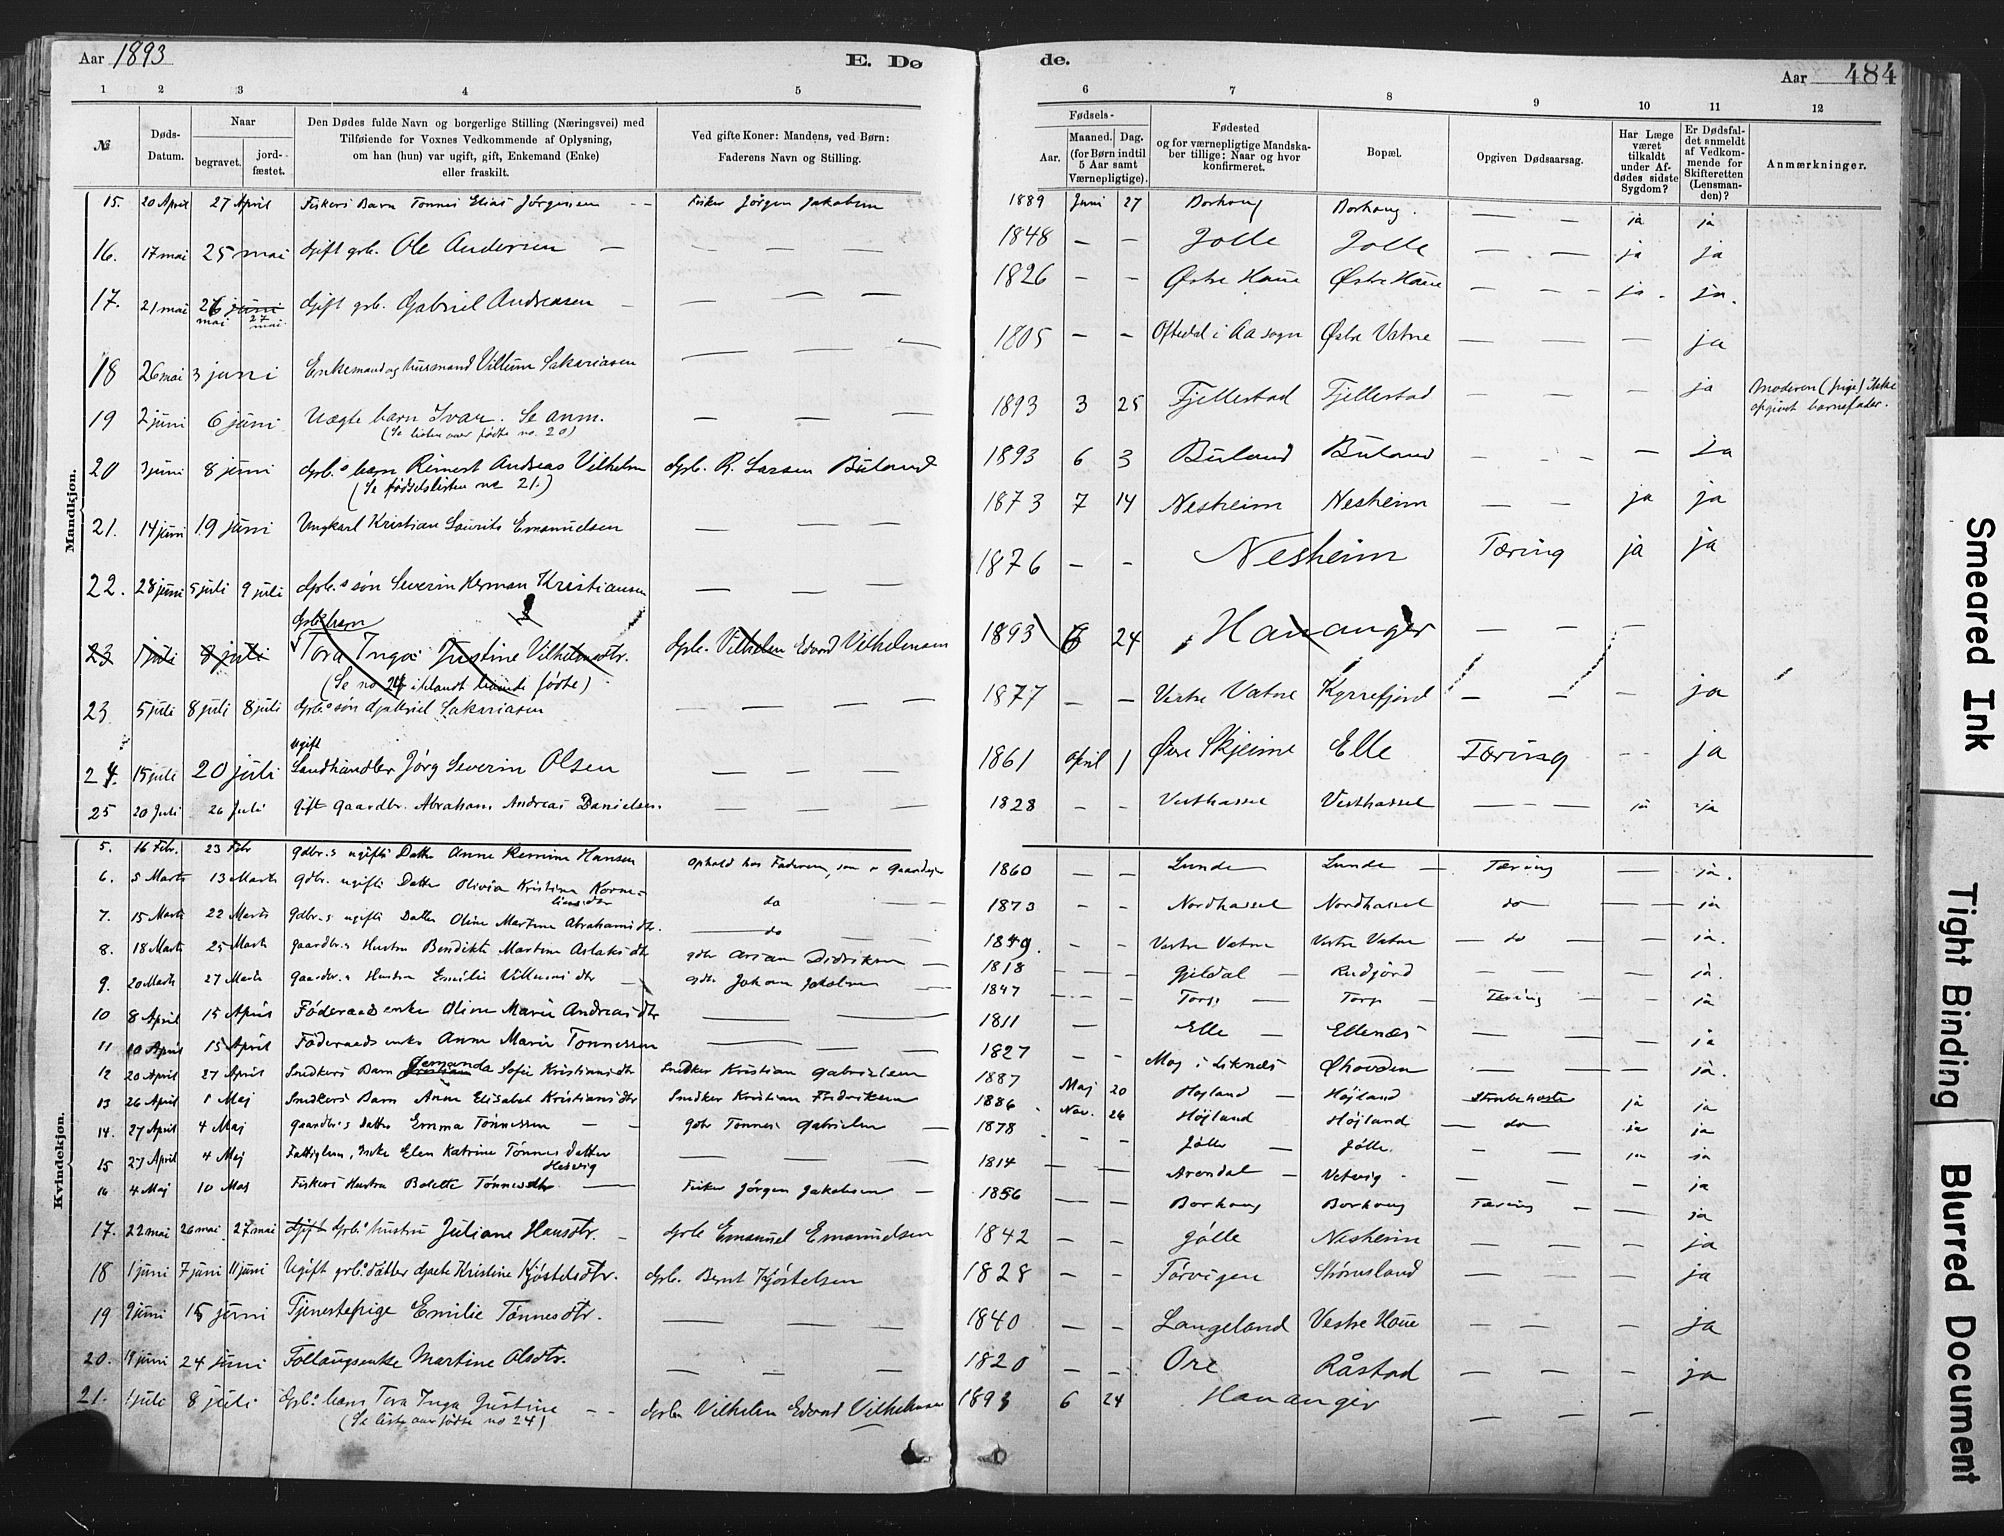 Aar 1893 E. Dø de. Aar 484
1 2 3 4 5 6 7 8 9 10 11 12
№ Døds-Datum. Naar begravet. jord-fæstet. Den Dødes fulde Navn og borgerlige Stilling (Næringsvei) med Tilføiende for Voxnes Vedkommende af Oplysning, om han (hun) var ugift, gift, Enkemand (Enke) eller fraskilt. Ved gifte Koner: Mandens, ved Børn: Faderens Navn og Stilling. Fødsels- Aar. Maaned. Dag. (for Børn indtil 5 Aar samt Værnepligtige). Fødested og for værnepligtige Mandskaber tillige: Naar og hvor konfirmeret. Bopæl. Opgiven Dødsaarsag. Har Læge været tilkaldt under Afdødes sidste Sygdom? Er Dødsfaldet anmeldt af Vedkommende for Skifteretten (Lensmanden)? Anmærkninger.
Mandkjøn.
15. 20 April 27 April Fiskers Barn Tønnes Elias Jørgensen — Fisker Jørgen Jakobsen 1889 Juni 27 Borhaug Borhaug. — — ja ja
16. 17 mai 25 mai Gift grb. Ole Andersen — — — 1848 — — Jølle Jølle — — ja ja
17. 21 mai 26 juni mai 27 mai. Gift grb. Gabriel Andreasen — — — 1826 — — Østre Haue Østre Haue — — ja. ja.
18 26 mai 3 juni Enkemand og husmand Villum Sakariasen — — — 1805 — — Oftedal i Aa sogn Østre Vatne — — — ja
19 2 juni 6 juni Uægte barn Ivar. Se anm. — — 1893 3 25 Fjellestad Fjellestad — — — ja Moderen (pige) ikke opgivet barnefader.
(Se listen over fødte no. 20)
20 3 juni 8 juni Grb.s barn Reinert Andreas Vilhelm Grb. R. Larsen Büland 1893 6 3 Büland Büland — — — ja
(Se fødselslisten no 21.)
21. 14 juni 19 juni Ungkarl Kristian Laurits Emanuelsen — — 1873 7 14 Nesheim Nesheim — — ja ja
22. 28 juni 5 juli 9 juli Grb.s søn Severin Herman Kristiansen — — 1876 — — Nesheim Tæring ja ja
Grb.s barn
23 1 juli 8 juli Tora Inga Justine Vilhelmsdtr. Grb. Vilhelm Edvard Vilhelmsen 1893 6 24 Hananger — — —
(Se no 24 iblandt levende fødte)
23 5 juli 8 juli 8 juli Grb.s søn Gabriel Sakariasen — — — 1877 — — Vestre Vatne Kyrrefjord — — — ja
ugift
24. 15 juli 20 juli Landhandler Jørg Severin Olsen — — — 1861 April 1 Øvre Skjeime Elle Tæring — ja
25 20 Juli 26 Juli gift gaardbr. Abraham Andreas Danielsen. — — — 1828 — — Vesthassel Vesthassel — — ja ja
Kvindekjøn.
5. 16 Febr. 23 Febr gdbr.s ugifte Datter Anne Hansen ophold hos Faderen, som er 1860 — — Lunde Lunde — Tæring — ja.
6. 5 Marts 13 Marts gdbr. ugifte Datter Olivia Kristine Korneliusdtr do — — 1873 — — Nordhassel Nordhassel do — — ja
7. 15 Marts 22 Marts gdbr.s ugifte Datter Oline Martine Abrahamsdtr. — do — 1849. — — Vestre Vatne Vestre Vatne — do — — ja.
8. 18 Marts 25 Marts gaardbr.s Hustru Bendikte Martine Aslaksdtr gdbr Arian Didriksen — 1818 — — Gjeldal — Rudjord — — — ja.
9. 20 Marts 27 Marts gaardbr.s Hustru Emilie Villumsdtr — gdbr Johan Jakobsen — 1847 — — Torp — Torp — Tæring — — ja
10 8 April 15 April Føderaadsenke Oline Marie Andreasdtr — — 1811 — Elle — Ellenæs — — — ja
11 10 April 15 April Føderaads enke Anne Marie Tønnessen — — — 1827 — — Moj i Liknæs Øhovden — — — ja.
12 20 April 27 April Snedkers Barn Sofie Kristiansdtr Snedker Kristian Gabrielsen 1887 Maj 20 Højland — Højland Strubehoste ja ja
13 26 April 1 Maj Snedkers Barn Anne Elisabet Kristiansdtr Snedker Kristian Fredriksen 1886 Nov. 26 Højland Højland — do — ja ja
14. 27 April 4 Maj gaardbr.s datter Emma Tønnessen — — gdbr Tønnes Gabrielsen — 1878 — — Jølle — Jølle. — — ja ja
15 27 April 4 Maj Fattiglem, Enke Elen Katrine Tønnes datter Hesvig — — — 1814 — — Arendal — Vetvig — — — ja
16 4 Maj 10 Maj Fiskers Hustru Bolette Tønnesdtr — Fisker Jørgen Jakobsen — 1856 — — Borhaug Borhaug Tæring — — ja
17. 22 mai 26 mai 27 mai Gift Grb.s hustru Juliane Hansdtr. — Grb Emanuel Emanuelsen 1842 — — Jølle Nesheim — — — ja
18 1 juni 7 juni 11 juni Ugift grb.s datter Gjæte Kristine Kjøstelsdtr. Grb. Bernt Kjøstelsen 1828 — — Tørvigen Strømsland — — — ja
19 9 juni 15 juni Tjenestepige Emilie Tønnesdtr. — — — 1840 — — Langeland Vestre Haue — — — ja
20. 19 juni 24 juni Følaugsenke Martine Olsdtr. — — — 1820 — — Ore Råstad — — — ja
21. 1 juli 8 juli Grb.s barn Tora Inga Justine — — Grbr Vilhelm Edvard Vilhelmsen 1893 6 24 Hananger — — —
(Se liste over fødte no 24)
Smeared Ink
Tight Binding
Blurred Document